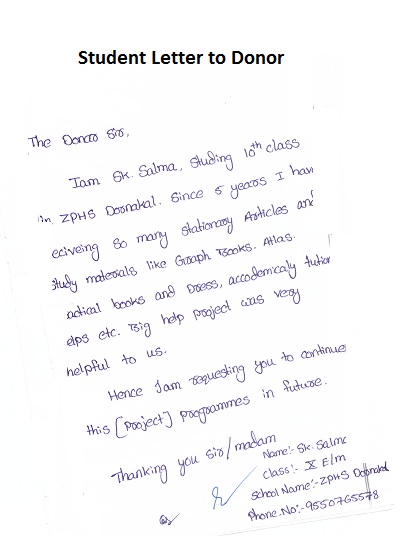 Student Letter to Donor
The Donar Sir,
Iam Sk. Salma, Studing 10th class
in ZPHS Dornakal. Since 5 years I hav
eciveing So many stationary Articles and
study materials like Graph Books. Atlas.
actical books and Dress, accodemicaly tution
elps etc. Big help project was very
helpful to us.
Hence Iam requesting you to continue
this [project] programmes in future.
Thanking you sir/madam
Name:- Sk. Salma
Class:- X E/m
School Name:- ZPHS Dornakal
Phone.No:- 9550765578